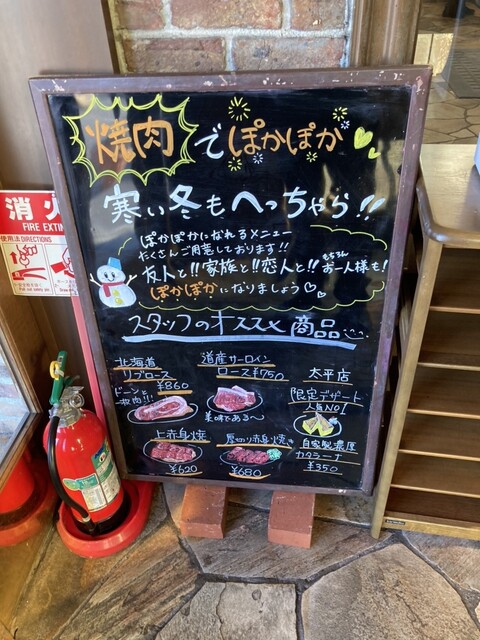 焼肉でぽかぽか
寒い冬もへっちゃら!!
ぽかぽかになれるメニュー
たくさんご用意しております!!
友人と!!家族と!!恋人と!!もちろんお一人様も!
ぽかぽかになりましょう
スタッフのオススメ商品
北海道
リブロース
¥860
ドーンと
一枚肉!!!
道産サーロイン
ロース¥750
美味である〜
太平店
限定デザート
人気NO1
自家製濃厚
カタラーナ
¥350
上赤身焼
¥620
厚切り赤身焼
¥680
消火
FIRE EXTIN
使用法 DIRECTIONS